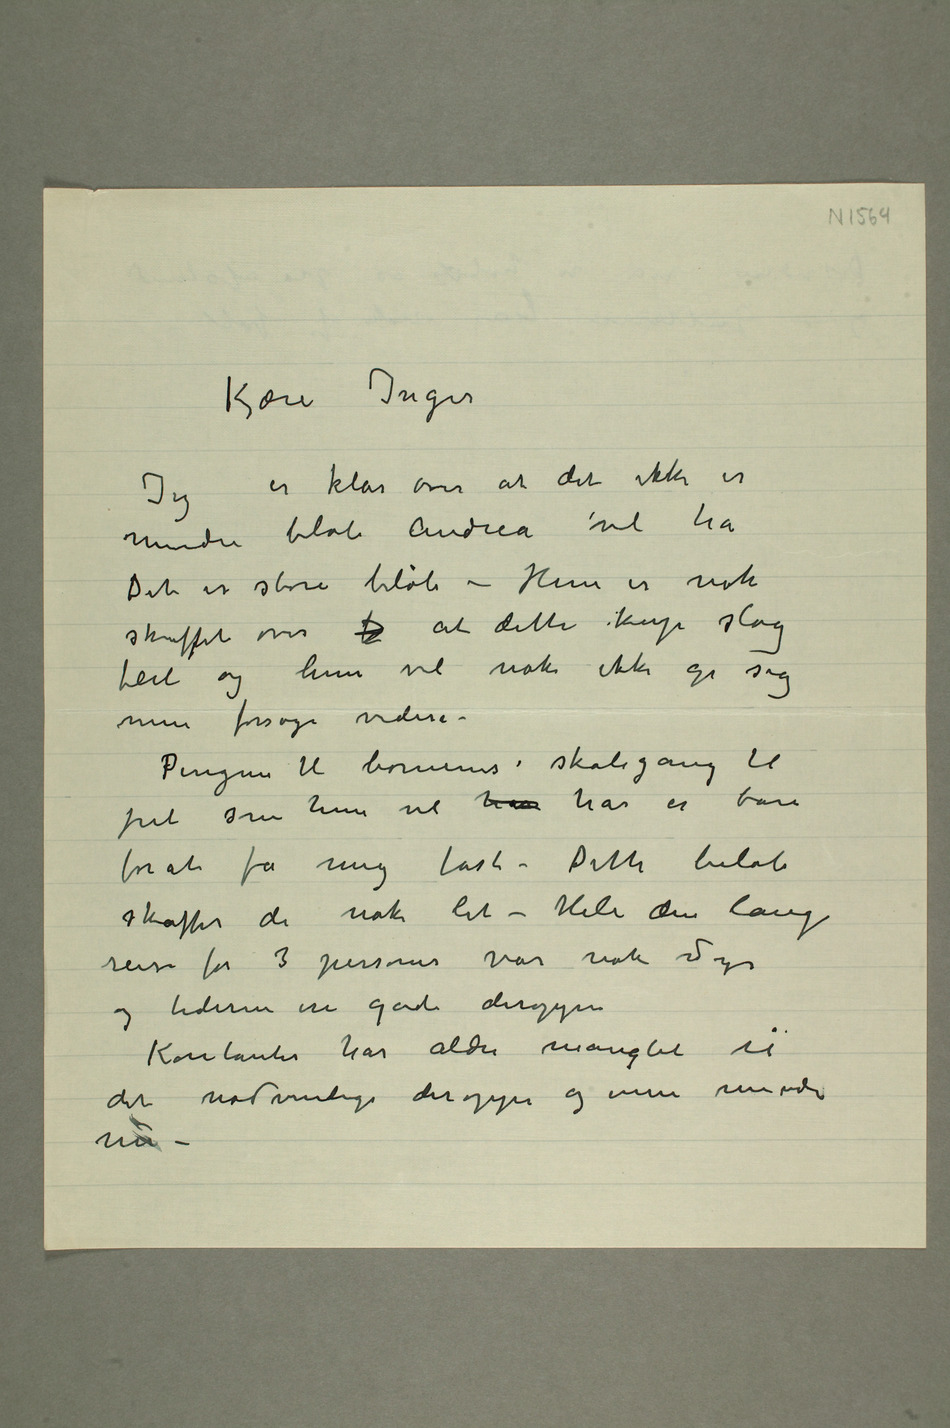 N 1564
Kjære Inger
Jeg er klar over at det ikke er
mindre beløb Andrea vil ha
Det er store beløb – Hun er nok
skuffet over D at dette kup slog
feil og hun vil nok ikke gi sig
men forsøge videre –
Pengene til børnenes skolegang til
som hun vil have har er bare
for at få mig fast – Dette beløb
skaffer de nok let – Hele den lange
reise for 3 personer var nok dyr
og tiderne ere gode deroppe
Kontanter har aldri manglet til
det nødvendige deroppe og enn mindre
nu –